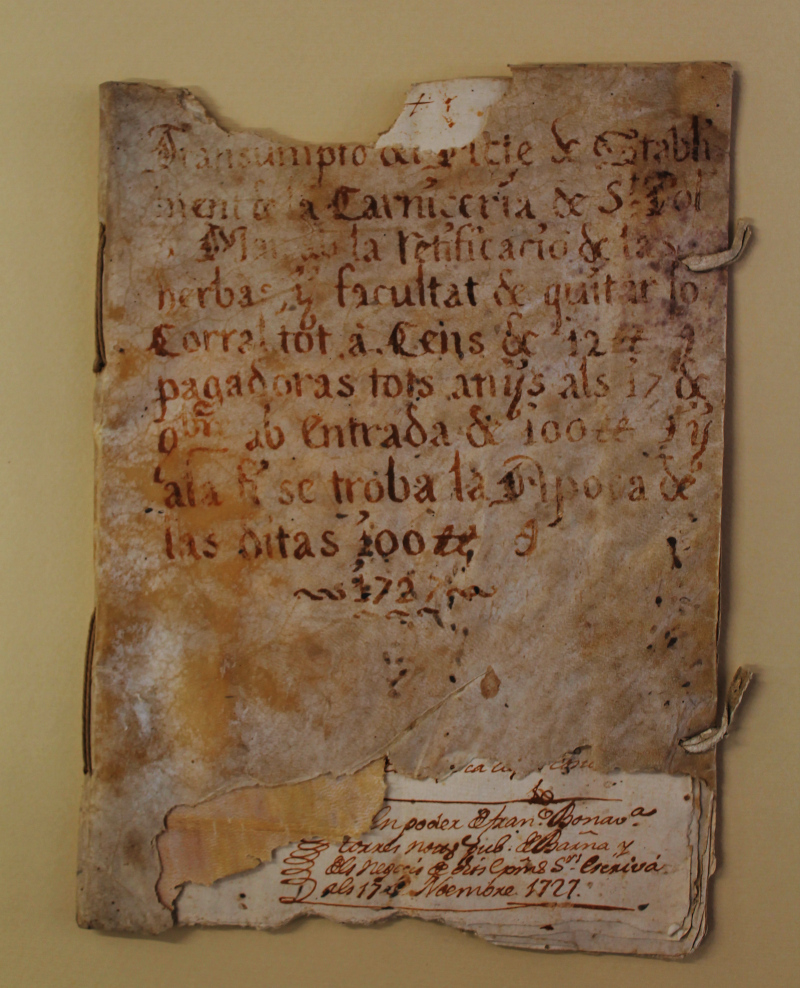 Transumpto del Acte de Stabli
ment de la Carniceria de St. Pol
Mar, ab la retificacio de las
herbas, y facultat de quitar lo
Corral tot á Cens de 12 ll
pagadoras tots anys als 17 de
9bre ab Entrada de 100 ll y
ala fi se troba la Apoca de
las ditas 100 ll
1727
En poder de Fran.co Bonav.a
Torres not. pub. de Barna y
als 17 de Noembre 1727.